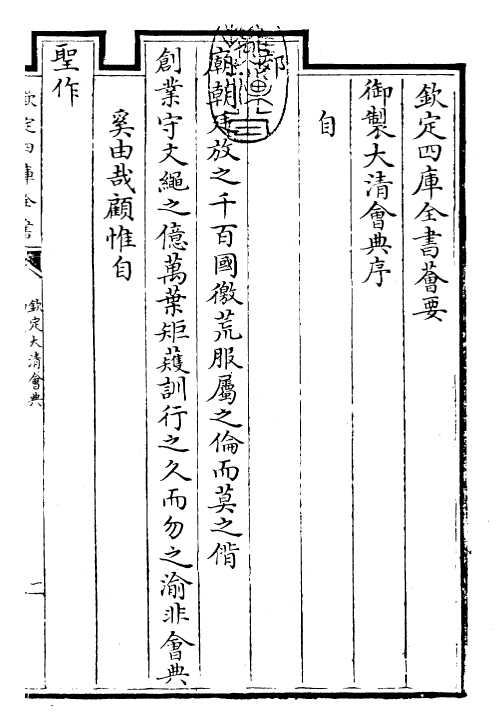 欽定四庫全書薈要
御製大清會典序
自
廟朝廷放之千百國徼荒服屬之倫而莫之偕
創業守文繩之億萬葉矩矱訓行之久而勿之渝非會典
奚由哉顧惟自
聖作
欽定四庫全書
欽定大清會典